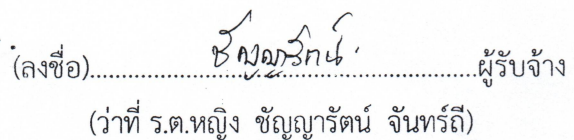 (ลงชื่อ).......ชัญญารัตน์.......ผู้รับจ้าง
(ว่าที่ ร.ต.หญิง ชัญญารัตน์ จันทร์ถี)